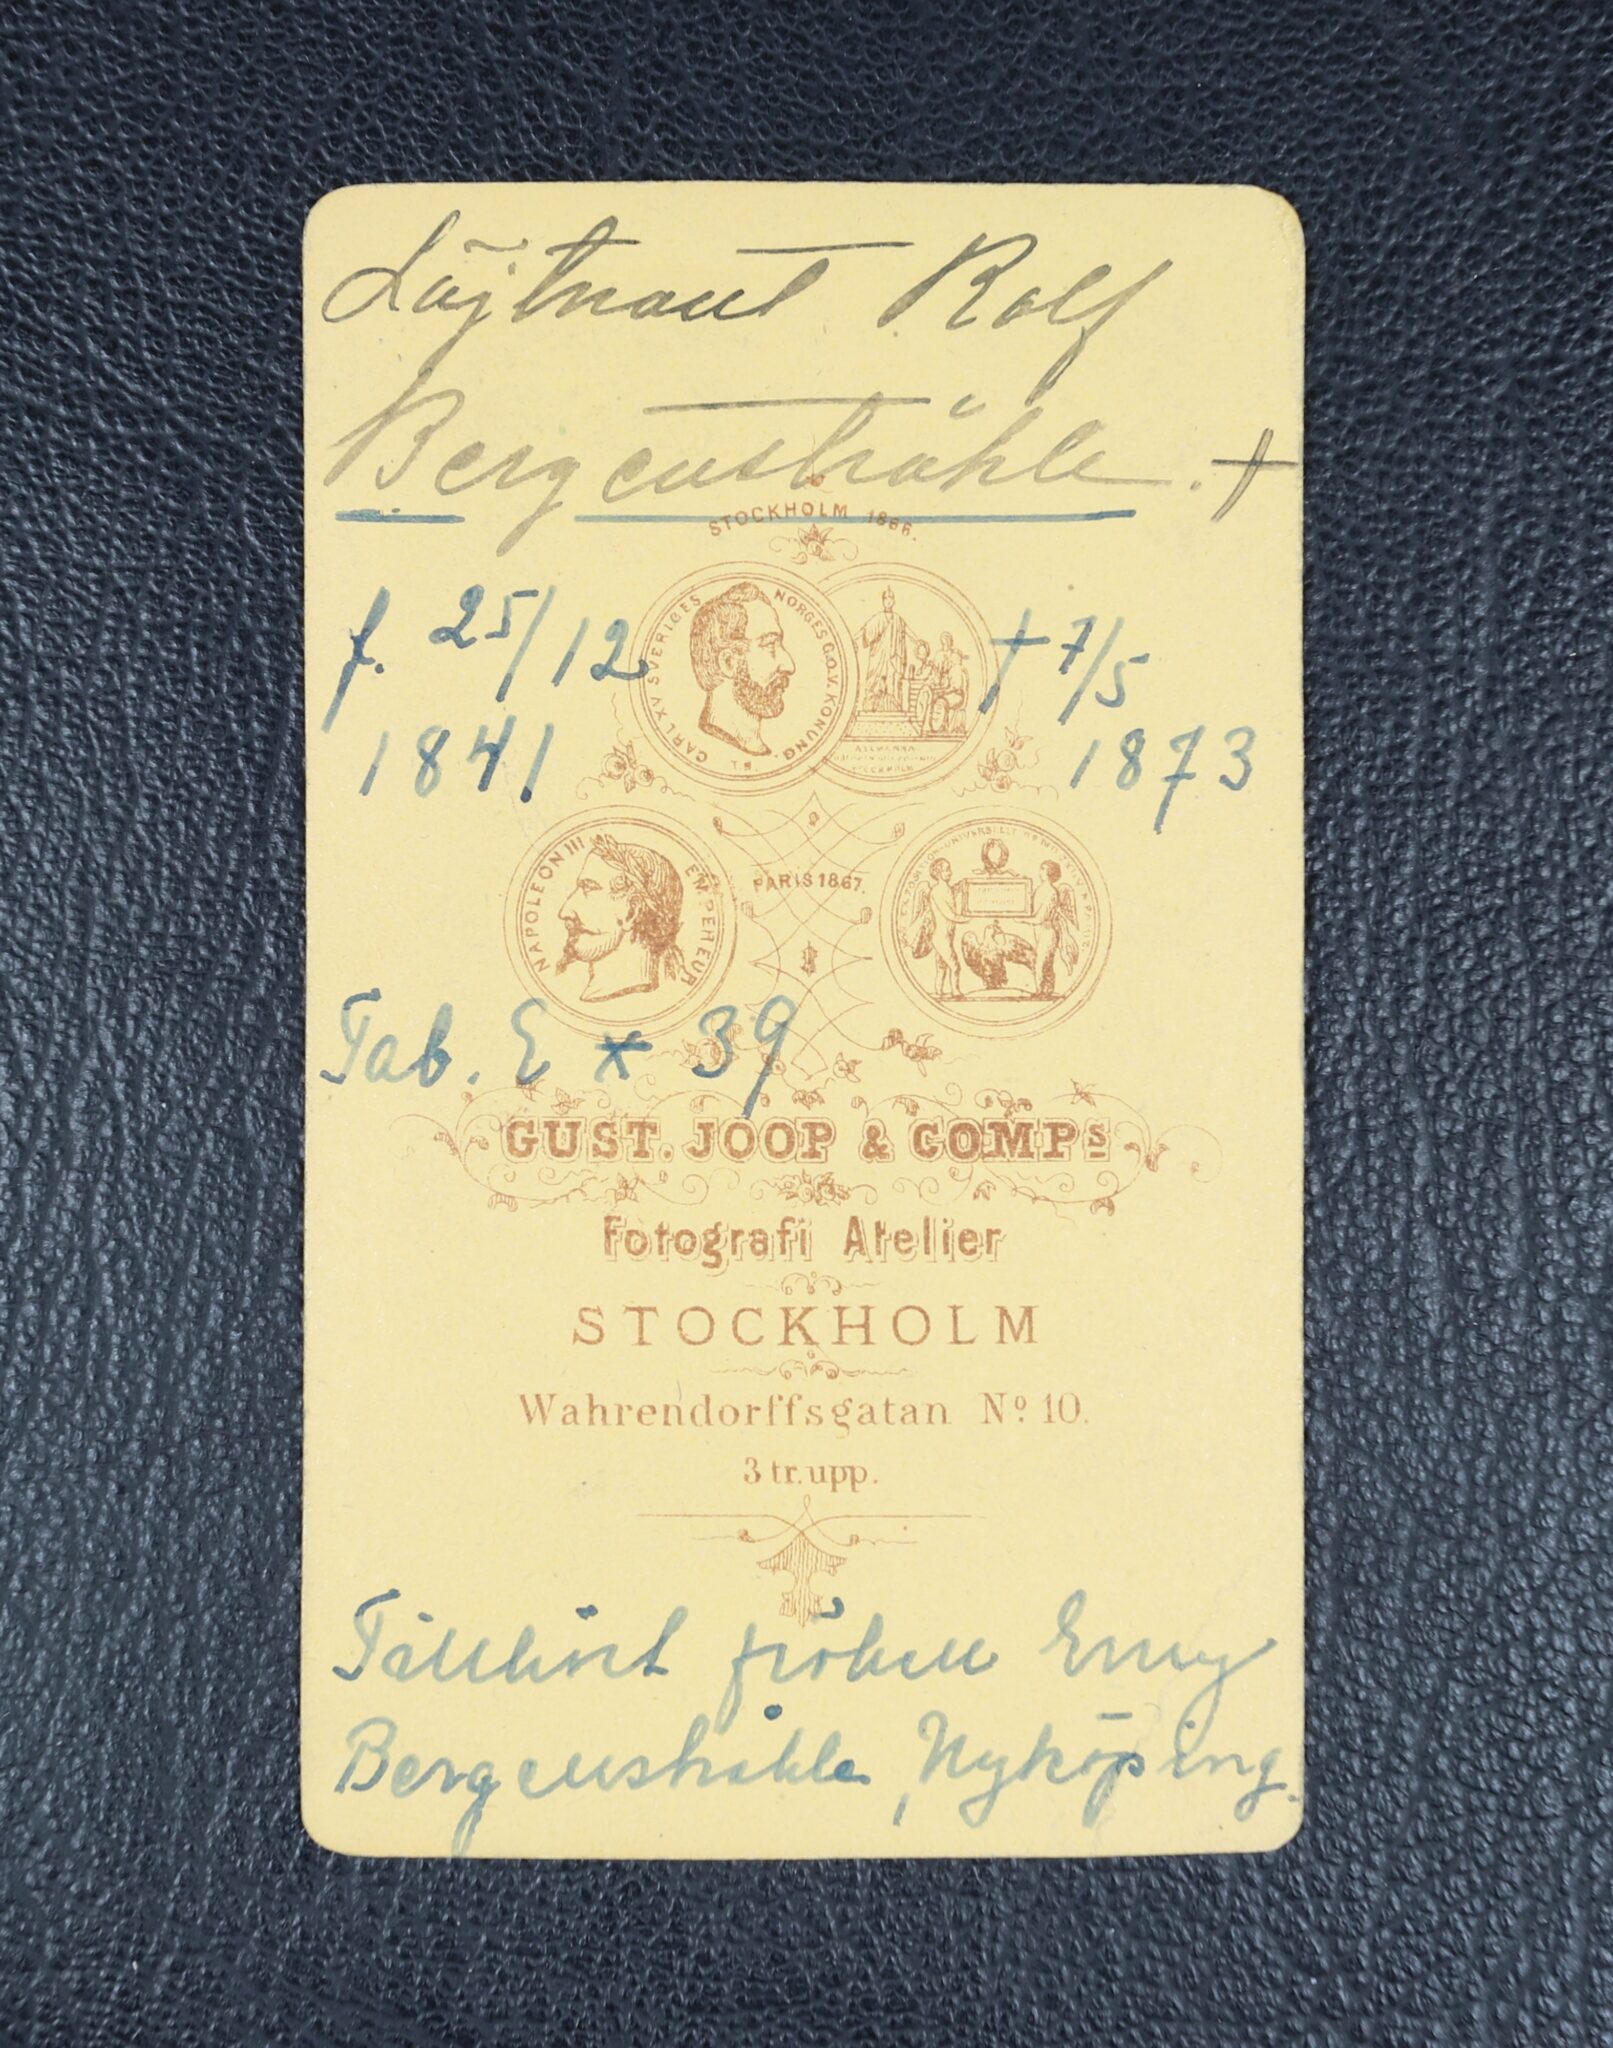 Löjtnant Rolf
Bergenstråhle. +
STOCKHOLM 1866.
CARL XV SVERIGES NORGES G.O.V. KONUNG
f. 25/12
1841
† 7/5
1873
NAPOLEON III EMPEREUR
PARIS 1867.
Tab. E * 39
GUST. JOOP & COMPS
Fotografi Atelier
STOCKHOLM
Wahrendorffsgatan No 10.
3 tr. upp.
Tillhört fröken Emy
Bergenstråhle, Nyköping.